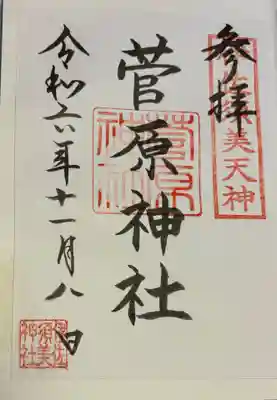 参拝
美天神
菅原神社
菅原神社
令和六年十一月八日
伊佐須美神社